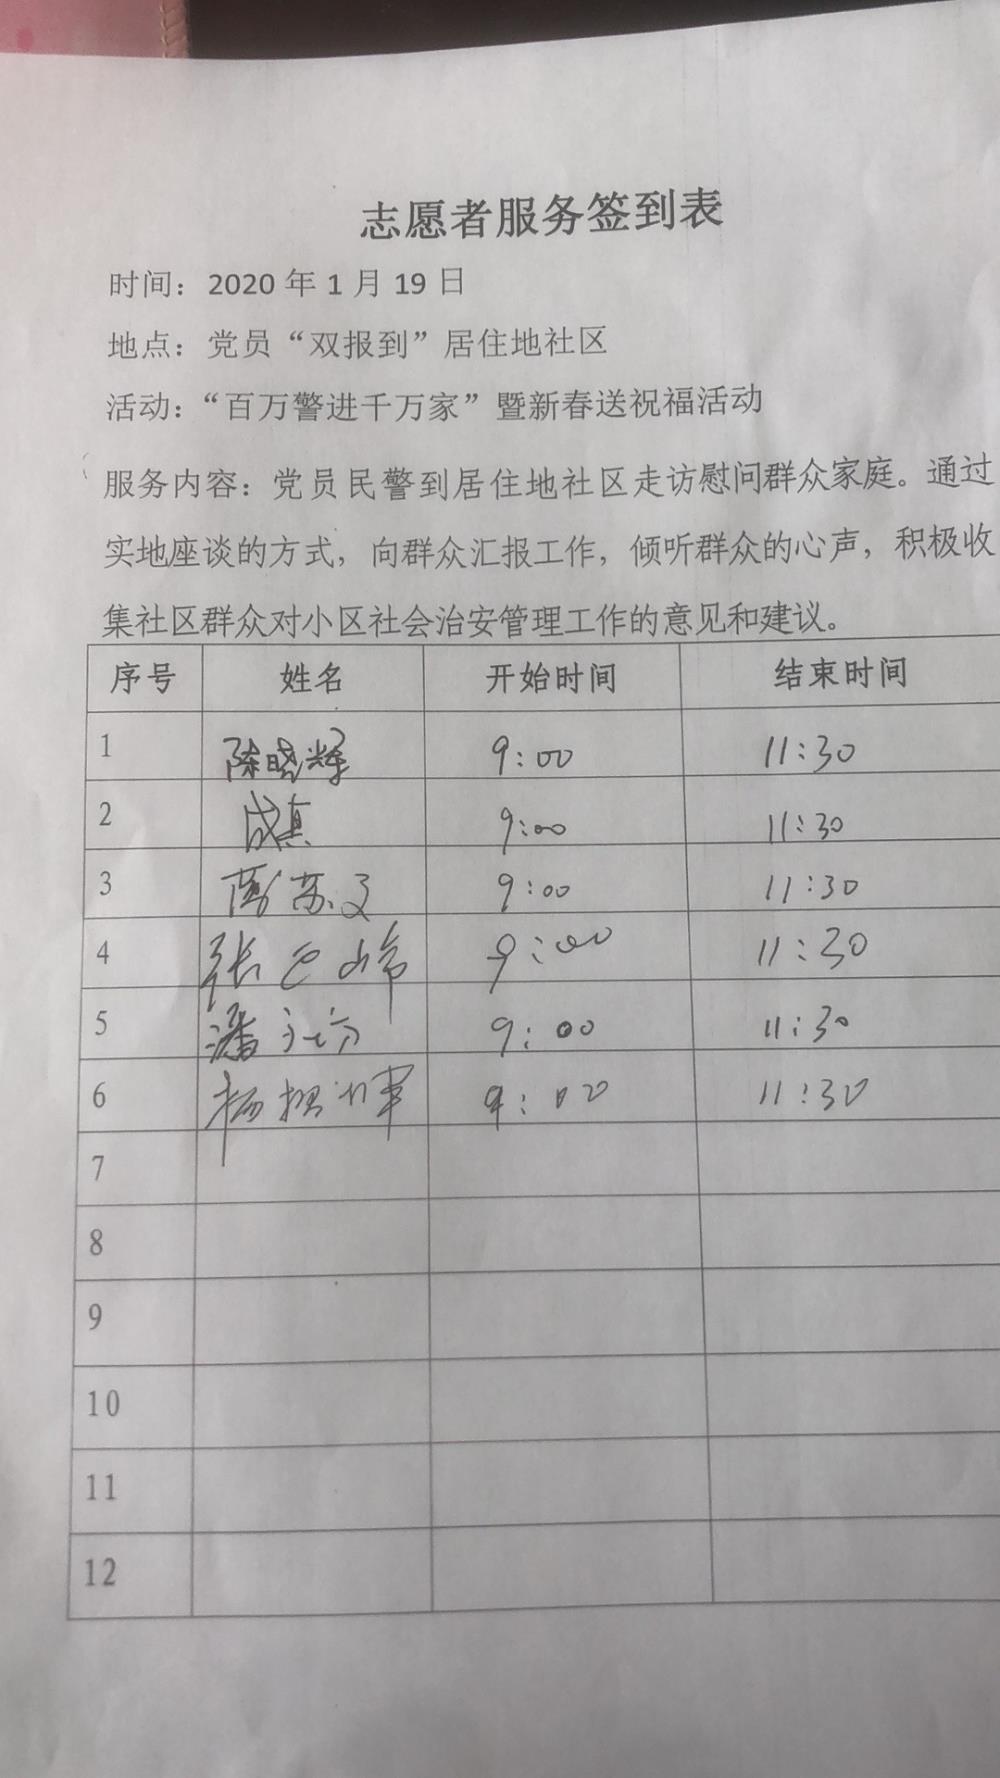 志愿者服务签到表
时间：2020 年 1 月 19 日
地点：党员“双报到”居住地社区
活动：“百万警进千万家”暨新春送祝福活动
服务内容：党员民警到居住地社区走访慰问群众家庭。通过
实地座谈的方式，向群众汇报工作，倾听群众的心声，积极收
集社区群众对小区社会治安管理工作的意见和建议。
序号 姓名 开始时间 结束时间
1 陈晓辉 9:00 11:30
2 成真 9:00 11:30
3 苏文 9:00 11:30
4 张 9:00 11:30
5 潘 9:00 11:30
6 杨 军 9:00 11:30
7
8
9
10
11
12